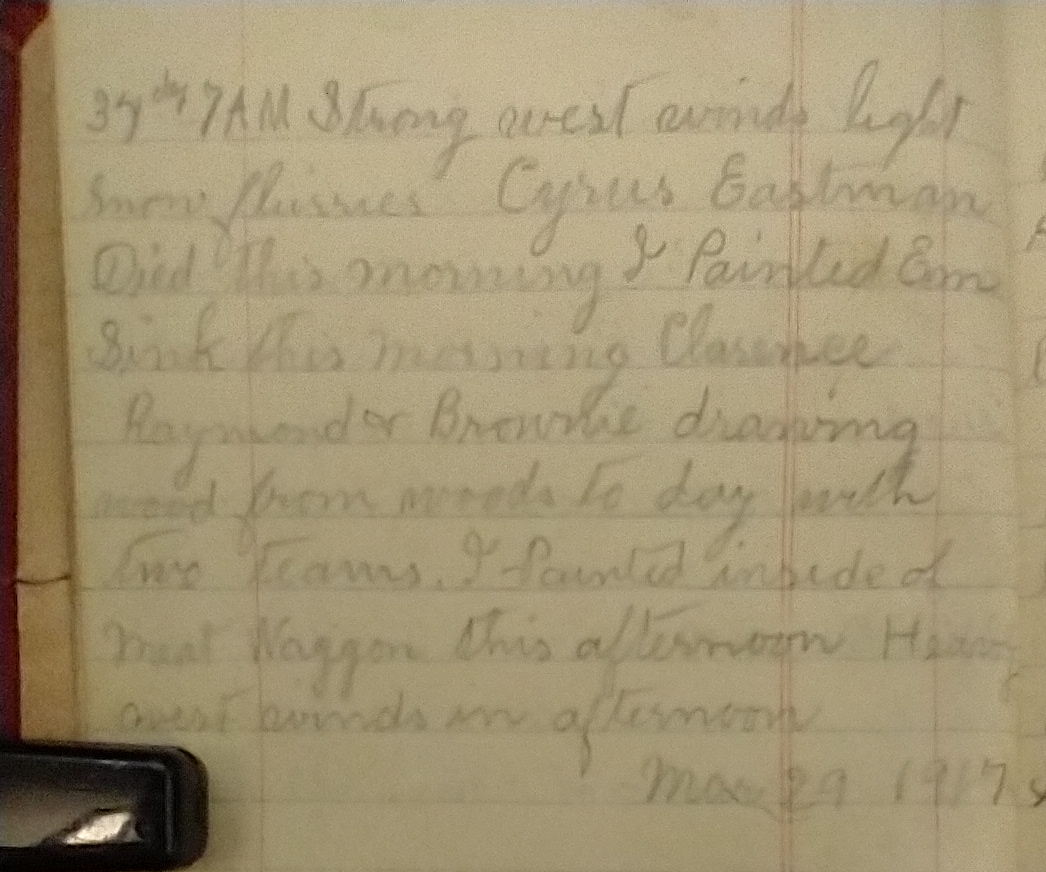 37 dg 7AM Strong west winds light
Snow flurries Cyrus Eastman
Died This morning I Painted Em
Sink this morning Clarence
Raymond & Brownie drawing
wood from woods To day with
Two Teams. I Painted inside of
meat Waggon this afternoon Heavy
west winds in afternoon
29 1917